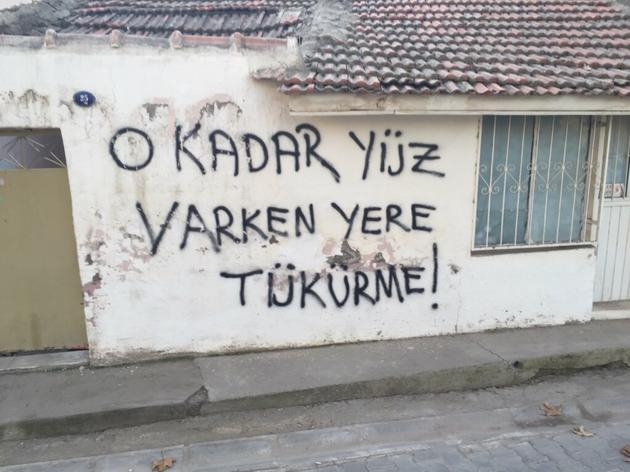 O KADAR YÜZ
VARKEN YERE
TÜKÜRME!